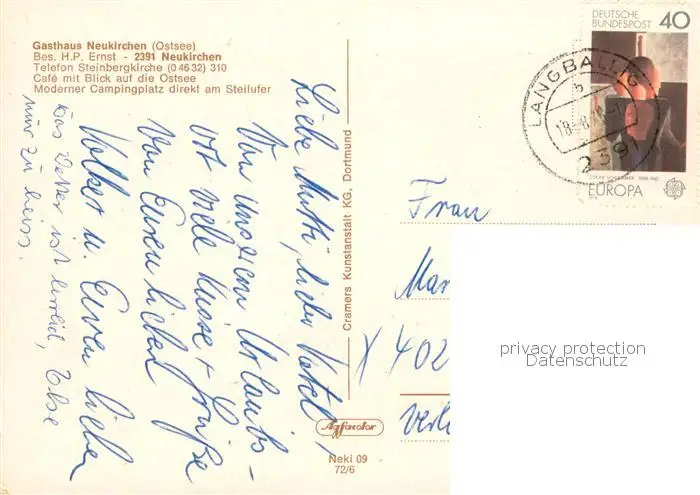 Gasthaus Neukirchen (Ostsee)
Bes. H.P. Ernst - 2391 Neukirchen
Telefon Steinbergkirche (0 46 32) 310
Café mit Blick auf die Ostsee
Moderner Campingplatz direkt am Steilufer
Liebe Mutti, lieber Vatel,
Von unserem Urlaubs-
ort viele Küsse + Grüße
Von Euren lieben
Volker u. Euren lieben
Das Wetter ist herrlich, Else
nur zu heiss.
Cramers Kunstanstalt KG, Dortmund
Agfacolor
Neki 09
72/6
DEUTSCHE
BUNDESPOST
40
OSKAR SCHLEMMER 1888-1943
EUROPA
LANGBALLIG
b
18.-8.
2391
Frau
Mar
X 402
Verl
privacy protection
Datenschutz